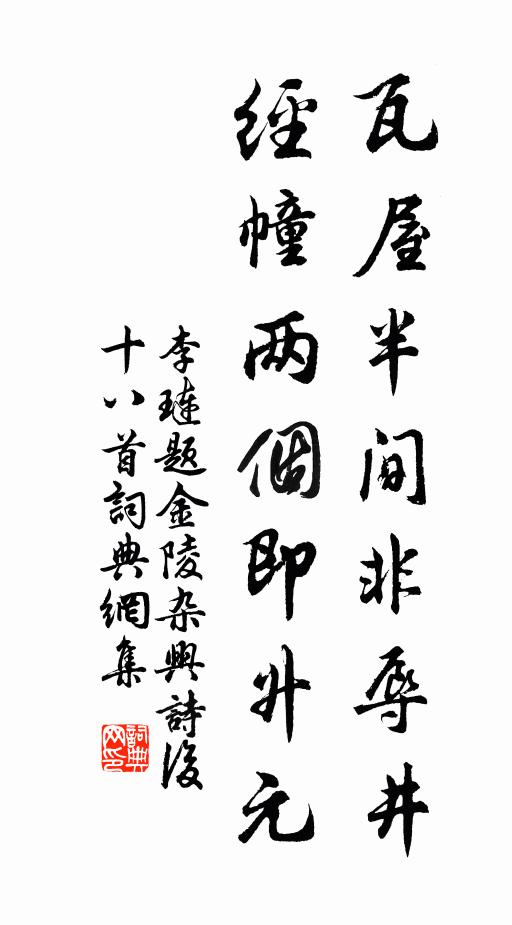 瓦屋半间非辱井
經幢两個即升元
李璉题金陵杂興詩後
十八首詞典網集
詞典
网印